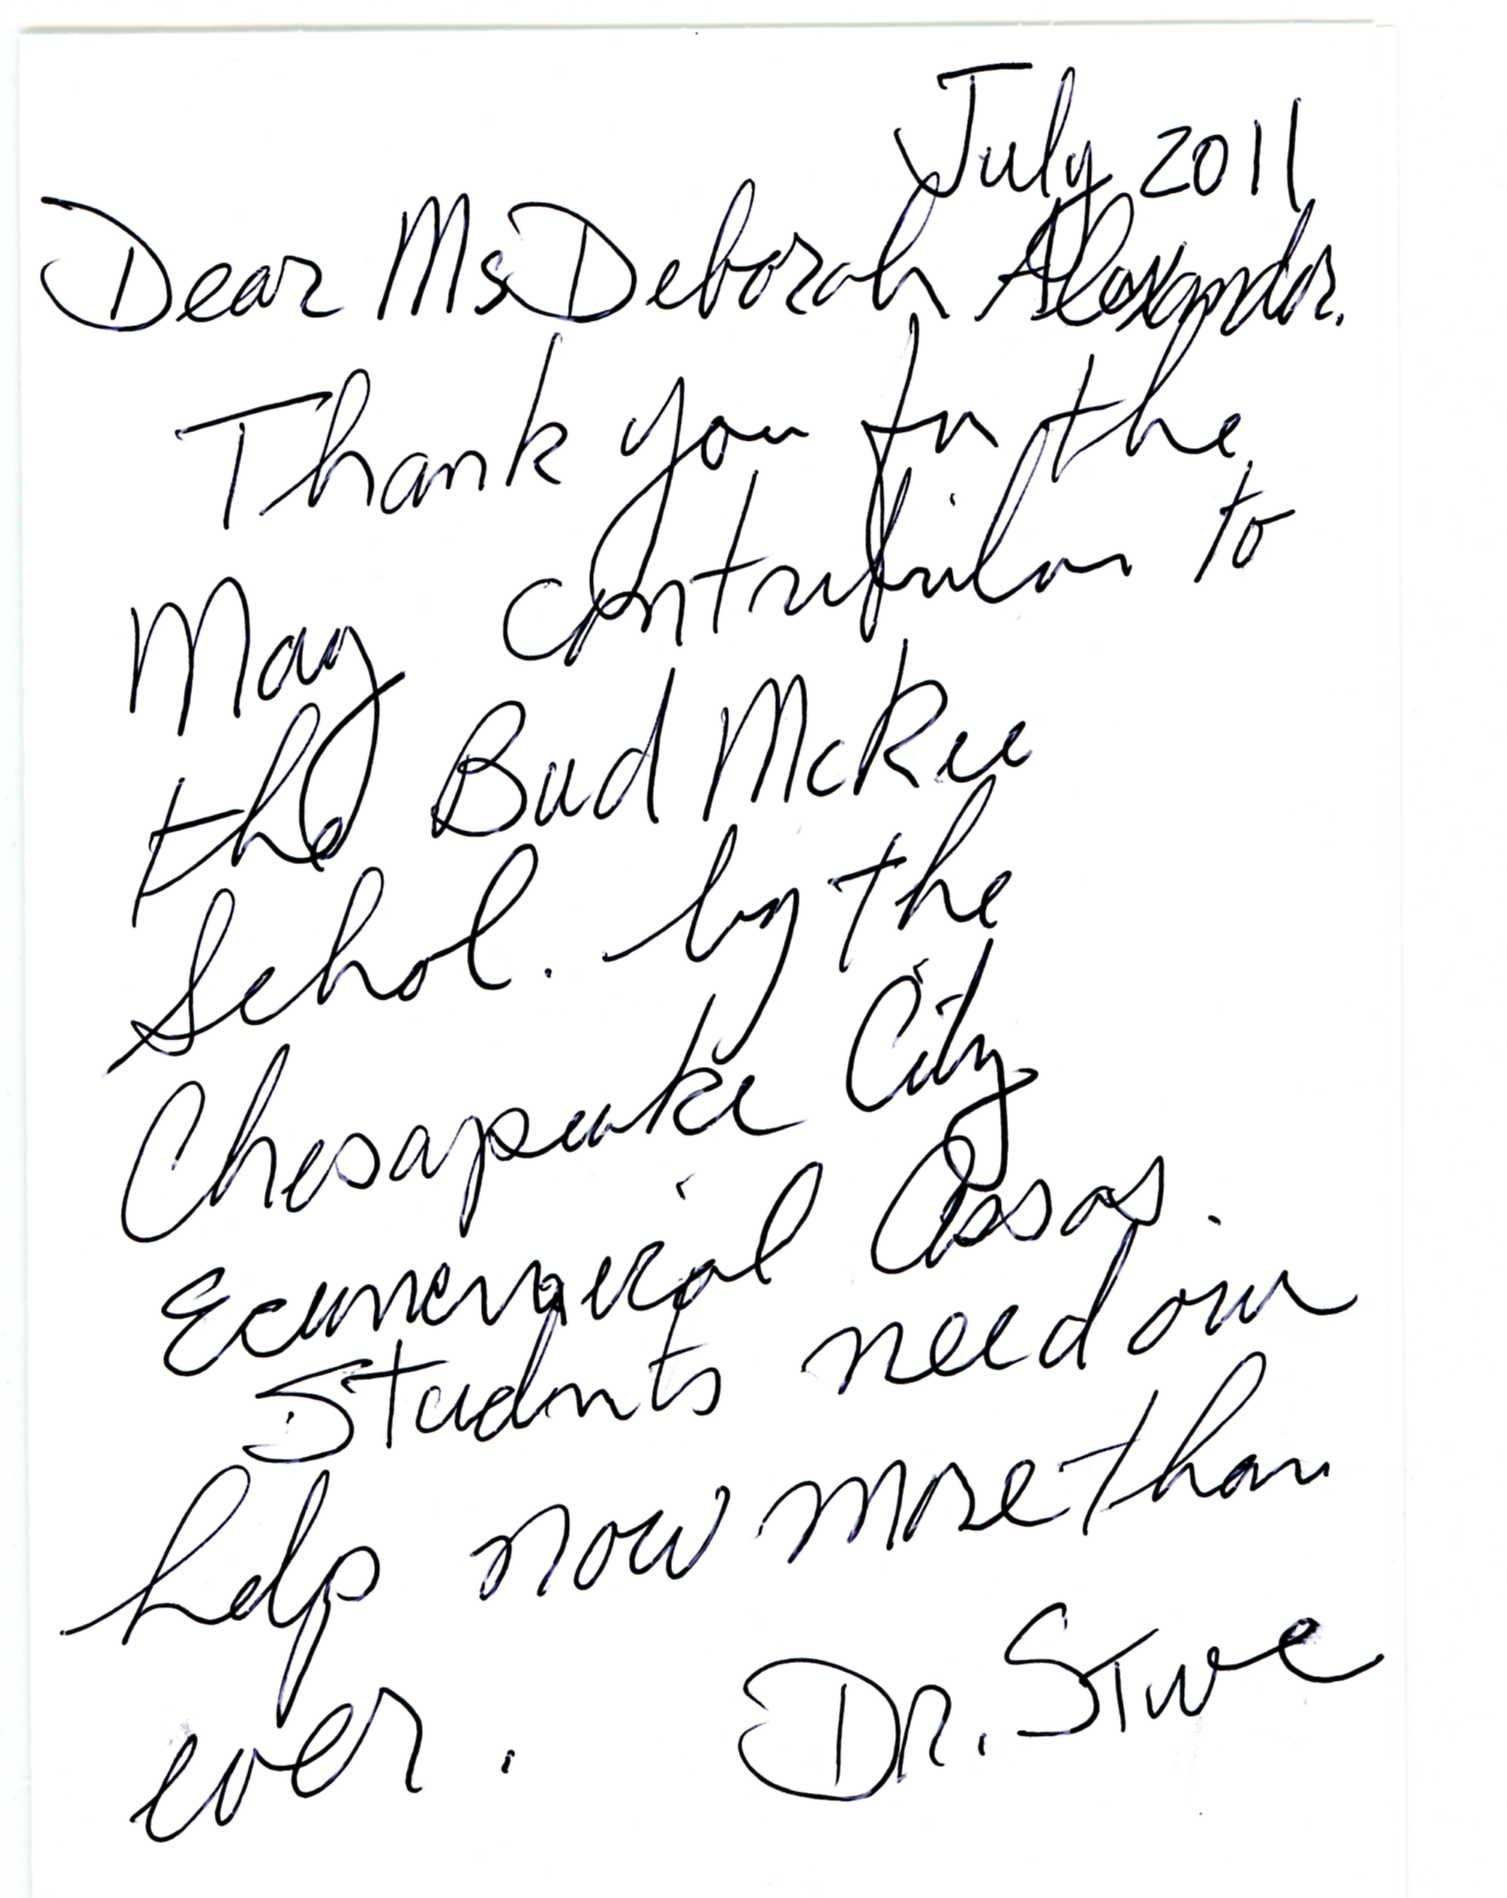 July 2011
Dear Ms Deborah Alexander.
Thank you for the
May contribution to
the Bud McKee
Schol. by the
Chesapeake City
Ecumenical Assos.
Students need our
help now more than
ever. DR. Steve